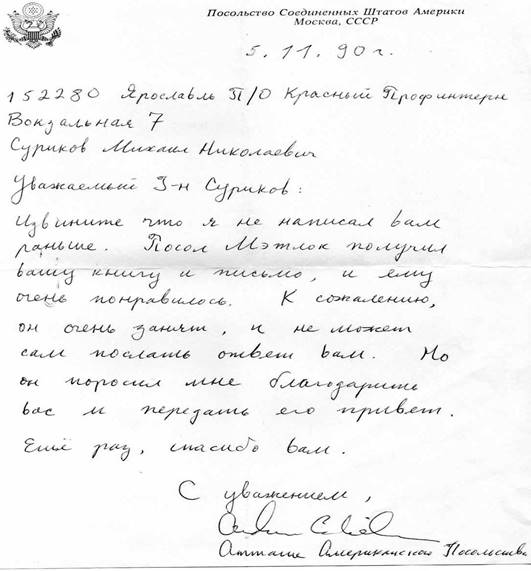 Посольство Соединенных Штатов Америки
Москва, СССР
5.11.90г.
152280 Ярославль П/О Красный Профинтерн
Вокзальная 7
Суриков Михаил Николаевич
Уважаемый Г-н Суриков:
Извините что я не написал вам
раньше. Посол Мэтлок получил
вашу книгу и письмо, и ему
очень понравилось. К сожалению,
он очень занят, и не может
сам послать ответ вам. Но
он поросил мне благодарить
вас и передать его привет.
Ещё раз, спасибо вам.
С уважением,
Атташе Американское Посольства